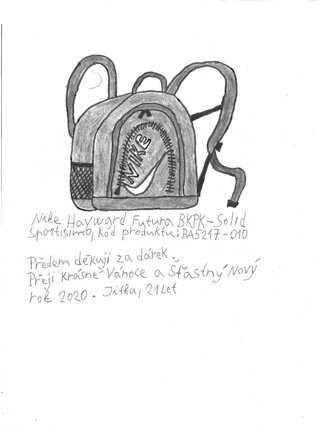 NIKE
Nike Hayward Futura BKPK-Solid
Sportisimo, kód produktu: BA5217-010
Předem děkuji za dárek.
Přeji Krásné Vánoce a Šťastný Nový
rok 2020. Jitka, 21 Let